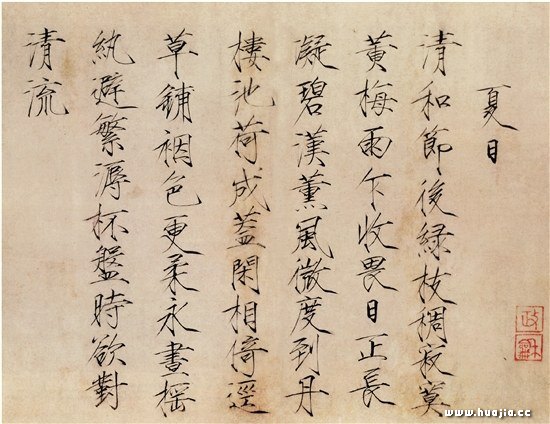 夏日
清和節後綠枝稠寂寞
黃梅雨乍收畏日正長
凝碧漢薰風微度到丹
樓池荷成蓋閑相倚逕
草鋪裀色更柔永晝搖
紈避繁溽杯盤時欲對
清流
政
www.huajia.cc